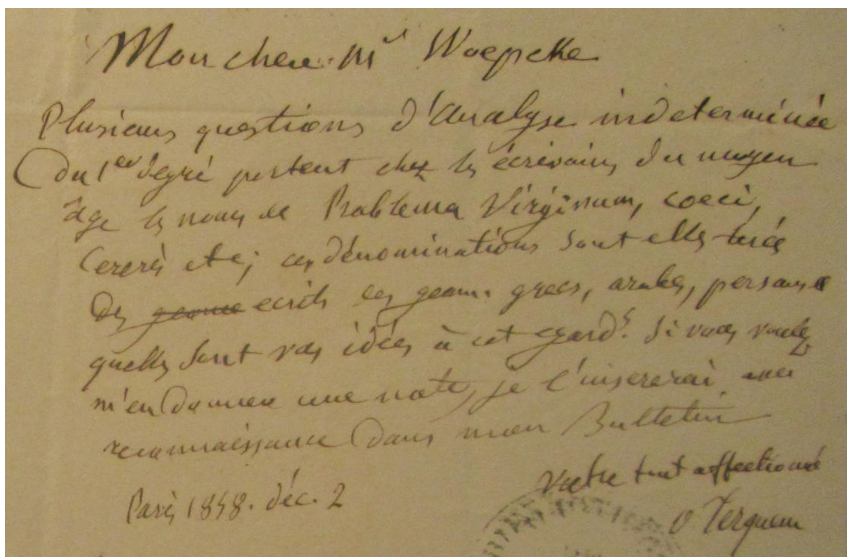 Mon cher Mr Woepcke
Plusieurs questions d'Analyse indeterminée
Du 1er degré portent chez les écrivains du moyen
âge les noms de Problema Virginum, coeci,
Cereris etc; ces dénominations sont elles tirées
des ecrits des geom. grecs, arabes, persans
quelles sont vos idées à cet egard. Si vous voulez
m'en donner une note, je l'insererai avec
reconnaissance dans mon Bulletin
votre tout affectionné
Paris 1858. déc. 2
O Terquem